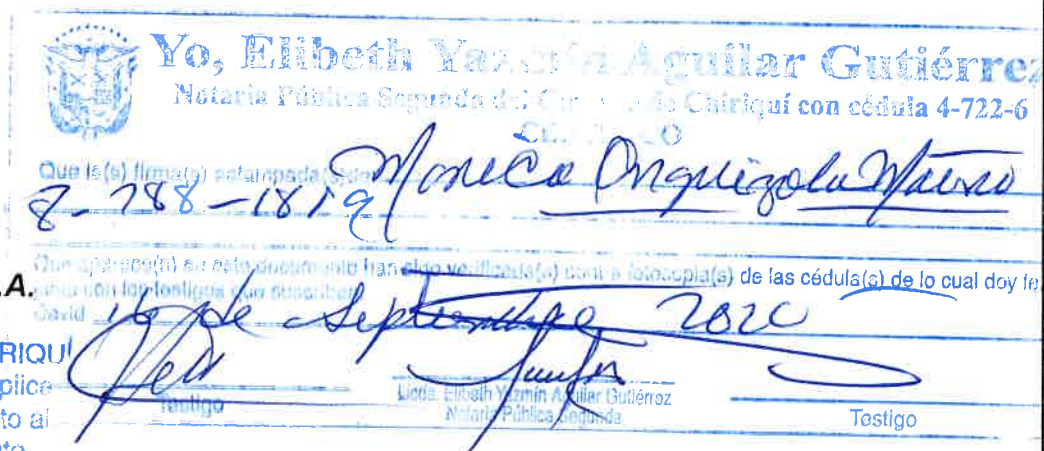 Yo, Elibeth Yazmín Aguilar Gutiérrez
Notaria Pública Segunda del Circuito de Chiriquí con cédula 4-722-6
CERTIFICO
Que la(s) firma(s) estampada(s) de Monica Orquizola Mauro
8-788-1819
Que aparece(n) en este documento han sido verificada(s) contra fotocopia(s) de las cédula(s) de lo cual doy fe
junto con los testigos que suscriben
David 16 de Septiembre 2020
Testigo
Licda. Elibeth Yazmín Aguilar Gutiérrez
Notaria Pública Segunda
Testigo
.A.
RIQUI
plica
to al